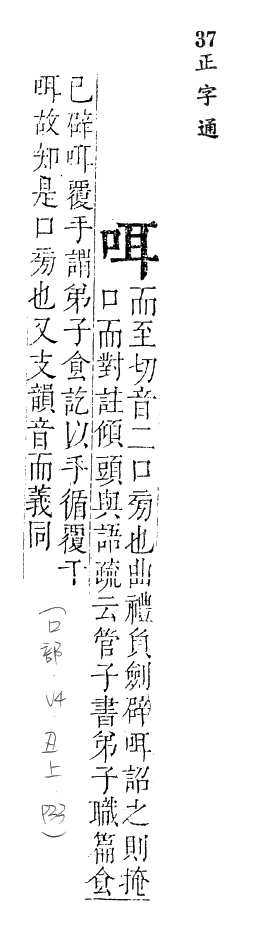 37正字通
咡
而至切音二口旁也曲禮負劍辟咡詔之則掩
口而對註傾頭與語疏云管子書弟子職篇食
已辟咡覆手謂弟子食訖以手循覆于
咡故知是口旁也又支韻音而義同
(口部·V4·丑上·P33)